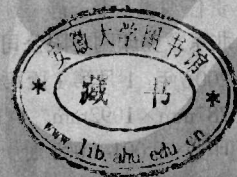 安徽大学图书馆
* 藏书 *
www.lib.ahu.edu.cn